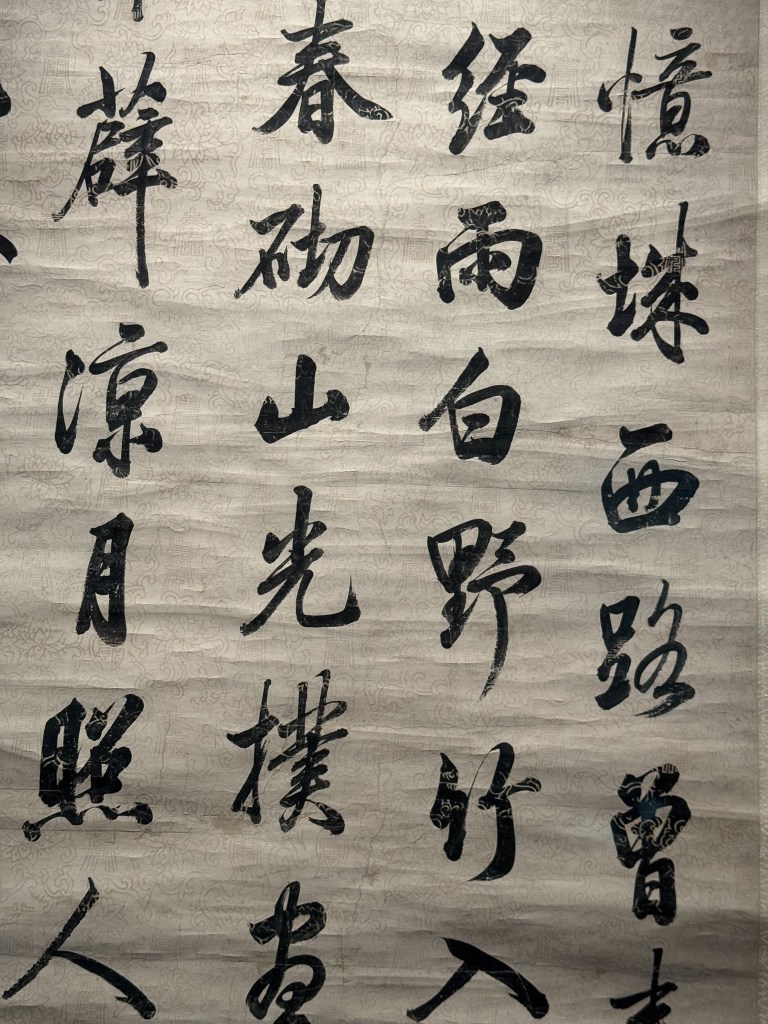 憶城西路曾
經雨白野竹入
春砌山光撲畫
薜涼月照人